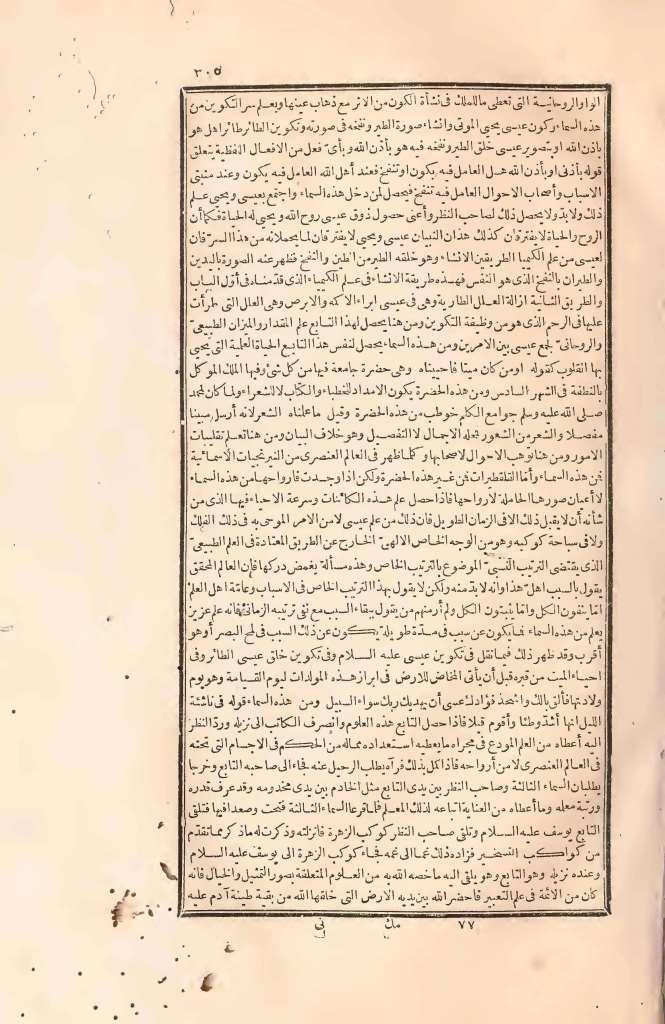 ٣٠٥
الواوالروحانية التى تعطى ماللملك فى نشأة الكون من الاثر مع ذهاب عينها ويعلم سر التكوين من
هذه السماء وكون عيسى يحيى الموتى وانشاء صورة الطير ونفخه فى صورته وتكوين الطائر طائرا هل هو
باذن الله اوبتصوير عيسى خلق الطير ونفخه فيه هو بأذن الله وبأى فعل من الافعال اللفظية يتعلق
قوله بأذنى اوبأذن الله هل العامل فيه يكون اوتنفخ فعند أهل الله العامل فيه يكون وعند مثبتى
الاسباب وأصحاب الاحوال العامل فيه تنفخ فيحصل لمن دخل هذه السماء واجتمع بعيسى ويحيى علم
ذلك ولابدّ ولا يحصل ذلك لصاحب النظر وأعنى حصول ذوق عيسى روح الله ويحيى له الحياة فكما أن
الروح والحياة لا يفترقان كذلك هذان النبيان عيسى ويحيى لا يفترقان لما يحملانه من هذا السرّ فان
لعيسى من علم الكيمياء الطريقين الانشاء وهو خلقه الطير من الطين والنفخ فظهر عنه الصورة باليدين
والطيران بالنفخ الذى هو النفس فهذه طريقة الانشاء فى علم الكيمياء الذى قدّمناه فى أوّل الباب
والطريق الثانية ازالة العلل الطارية وهى فى عيسى ابراء الاكمه والابرص وهى العلل التى طرأت
عليها فى الرحم الذى هو من وظيفة التكوين ومن هنا يحصل لهذا التابع علم المقدار والميزان الطبيعىّ
والروحانىّ لجمع عيسى بين الامرين ومن هذه السماء يحصل لنفس هذا التابع الحياة العلمية التى يحيى
بها القلوب كقوله اومن كان ميتا فاحييناه وهى حضرة جامعة فيها من كل شئ وفيها الملك الموكل
بالنطفة فى الشهر السادس ومن هذه الحضرة يكون الامداد للخطباء والكتاب لا للشعراء ولما كان لمحمد
صلى الله عليه وسلم جوامع الكلم خوطب من هذه الحضرة وقيل ماعلمناه الشعر لانه أرسل مبينا
مفصلا والشعر من الشعور فمحله الاجمال لا التفصيل وهو خلاف البيان ومن هنا تعلم تقليبات
الامور ومن هنا توهب الاحوال لاصحابها وكلما ظهر فى العالم العنصرى من النيرنجيات الاسمائية
فمن هذه السماء وأما الفلقطيرات فمن غير هذه الحضرة ولكن اذا وجدت فارواحها من هذه السماء
لا أعيان صورها الحاملة لارواحها فاذا حصل علم هذه الكائنات وسرعة الاحياء فيها الذى من
شأنه أن لا يقبل ذلك الا فى الزمان الطويل فان ذلك من علم عيسى لا من الامر الموحى به فى ذلك الفلك
ولا فى سباحة كوكبه وهو من الوجه الخاص الالهىّ الخارج عن الطريق المعتادة فى العلم الطبيعىّ
الذى يقتضى الترتيب النسبىّ الموضوع بالترتيب الخاص وهذه مسألة يغمض دركها فان العالم المحقق
يقول بالسبب اهل هذا وانه لابدّ منه ولكن لا يقول بهذا الترتيب الخاص فى الاسباب وعامّة اهل العلم
امّا ينفون الكل وامّا يثبتون الكل ولم أر منهم من يقول ببقاء السبب مع نفى ترتيبه الزمانى فانه علم عزيز
يعلم من هذه السماء فما يكون عن سبب فى مدّة طويلة يكون عن ذلك السبب فى لمح البصر أو هو
أقرب وقد ظهر ذلك فيما نقل فى تكوين عيسى عليه السلام وفى تكوين خلق عيسى الطائر وفى
احياء الميت من قبره قبل أن يأتى المخاض للارض فى ابراز هذه المولدات ليوم القيامة وهو يوم
ولادتها فألق بالك واشحذ فؤادك عسى أن يهديك ربك سواء السبيل ومن هذه السماء قوله فى ناشئة
الليل انها أشدّ وطئا وأقوم قيلا فاذا حصل التابع هذه العلوم وانصرف الكاتب الى نزيله وردّ النظر
اليه أعطاه من العلم المودع فى مجراه ما يعطيه استعداده مماله من الحكم فى الاجسام التى تحته
فى العالم العنصرى لا من أرواحه فاذا كمل بذلك قراه يطلب الرحيل عنه فجاء الى صاحبه التابع وخرجا
يطلبان السماء الثالثة وصاحب النظر بين يدى التابع مثل الخادم بين يدى مخدومه وقد عرف قدره
ورتبة معلمه وما أعطاه من العناية اتباعه لذلك المعلم فلما قرعا السماء الثالثة فتحت وصعدا فيها فتلقى
التابع يوسف عليه السلام وتلقى صاحب النظر كوكب الزهرة فانزلته وذكرت له ماذكر مما تقدّم
من كواكب التسخير فزاده ذلك غما الى غمه فجاء كوكب الزهرة الى يوسف عليه السلام
وعنده نزيله وهو التابع وهو يلقى اليه ماخصه الله به من العلوم المتعلقة بصور التمثيل والخيال فانه
كان من الائمة فى علم التعبير فاحضر الله بين يديه الارض التى خلقها الله من بقية طينة آدم عليه
٧٧ مك نى